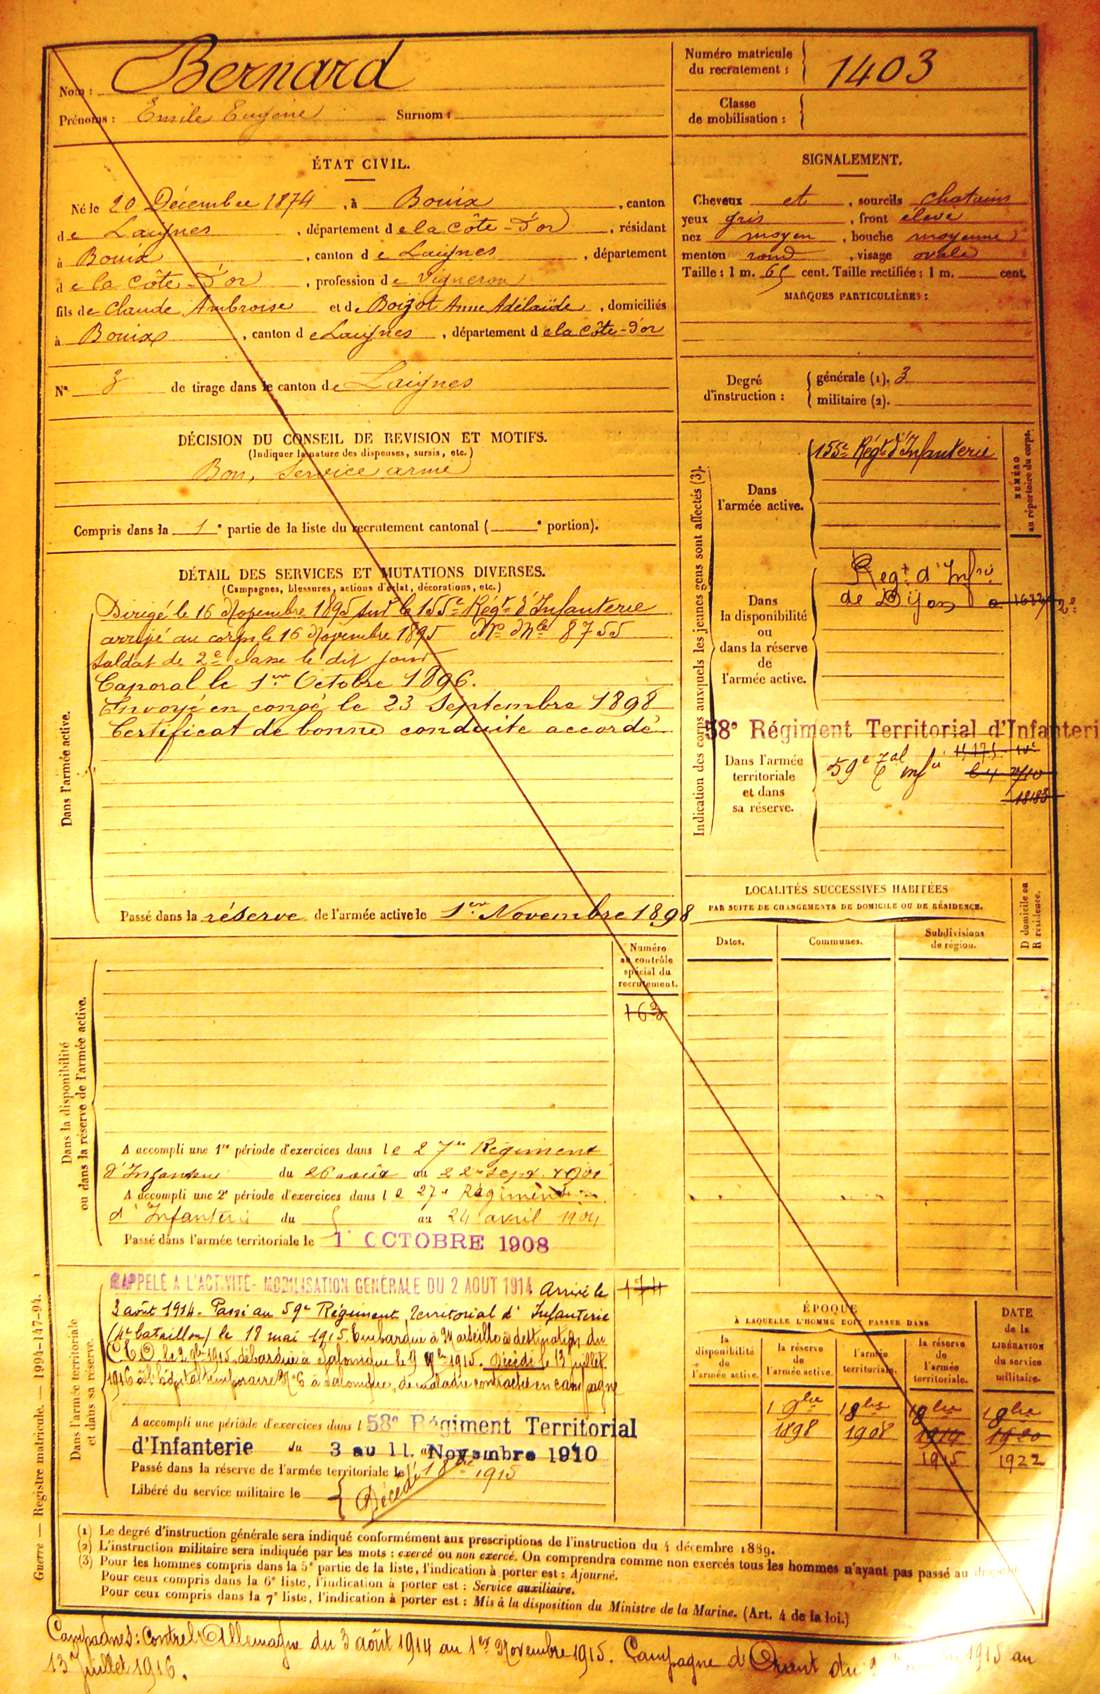 Nom : Bernard
Prénoms : Emile Eugène Surnom :
Numéro matricule du recrutement : 1403
Classe de mobilisation :
ÉTAT CIVIL.
Né le 20 Décembre 1874, à Bouix, canton
de Laignes, département de la Côte-d'Or, résidant
à Bouix, canton de Laignes, département
de la Côte-d'Or, profession de Vigneron
fils de Claude Ambroise et de Boizot Anne Adélaïde, domiciliés
à Bouix, canton de Laignes, département de la Côte-d'Or
N° 3 de tirage dans le canton de Laignes
SIGNALEMENT.
Cheveux et, sourcils chatains
yeux gris, front élevé
nez moyen, bouche moyenne
menton rond, visage ovale
Taille : 1 m. 65 cent. Taille rectifiée : 1 m. cent.
MARQUES PARTICULIÈRES :
Degré d'instruction : générale (1). 3
militaire (2).
DÉCISION DU CONSEIL DE REVISION ET MOTIFS.
(Indiquer la nature des dispenses, sursis, etc.)
Bon, Service armé
Compris dans la 1e partie de la liste du recrutement cantonal ( e portion).
DÉTAIL DES SERVICES ET MUTATIONS DIVERSES.
(Campagnes, blessures, actions d'éclat, décorations, etc.)
Dans l'armée active.
Dirigé le 16 Novembre 1895 sur le 155e Régt d'Infanterie
arrivé au corps le 16 Novembre 1895 No Mle 8755
Soldat de 2e classe le dit jour
Caporal le 1er Octobre 1896.
Envoyé en congé le 23 Septembre 1898
Certificat de bonne conduite accordé
Passé dans la réserve de l'armée active le 1er Novembre 1898
Indication des corps auxquels les jeunes gens sont affectés (3).
NUMÉRO
au répertoire du corps.
Dans l'armée active.
155e Régt d'Infanterie
Dans la disponibilité ou dans la réserve de l'armée active.
Regt d'Infrie
de Dijon
58e Régiment Territorial d'Infanteri
Dans l'armée territoriale et dans sa réserve.
59e Tal Infie
LOCALITÉS SUCCESSIVES HABITÉES
PAR SUITE DE CHANGEMENTS DE DOMICILE OU DE RÉSIDENCE.
Dates. Communes. Subdivisions de région.
D domicile ou R résidence.
Dans la disponibilité ou dans la réserve de l'armée active.
Numéro au contrôle spécial du recrutement.
A accompli une 1re période d'exercices dans le 27e Régiment
d'Infanterie du 26 août au 22 sept. 1901
A accompli une 2e période d'exercices dans le 27e Régiment
d'Infanterie du au 24 avril 1904
Passé dans l'armée territoriale le 1 OCTOBRE 1908
Dans l'armée territoriale et dans sa réserve.
RAPPELÉ A L'ACTIVITÉ - MOBILISATION GÉNÉRALE DU 2 AOUT 1914 Arrivé le
3 août 1914. Passé au 59e Régiment Territorial d'Infanterie
(4e bataillon) le 18 mai 1915. Embarqué à Marseille à destination du
C E O. le 2 9bre 1915, débarqué à Salonique le 9 9bre 1915. Décédé le 13 juillet
1916 à l'hôpital temporaire No 6 à Salonique, de maladie contractée en campagne
A accompli une période d'exercices dans l 58e Régiment Territorial
d'Infanterie du 3 au 11 Novembre 1910
Passé dans la réserve de l'armée territoriale le 1 8bre 1915
Libéré du service militaire le Décédé
ÉPOQUE
À LAQUELLE L'HOMME DOIT PASSER DANS
la disponibilité de l'armée active. la réserve de l'armée active. l'armée territoriale. la réserve de l'armée territoriale.
DATE de la LIBÉRATION du service militaire.
1 9bre 1898
1 8bre 1908
1 8bre 1914
1915
1 8bre 1920
1922
(1) Le degré d'instruction générale sera indiqué conformément aux prescriptions de l'instruction du 4 décembre 1889.
(2) L'instruction militaire sera indiquée par les mots : exercé ou non exercé. On comprendra comme non exercés tous les hommes n'ayant pas passé au
(3) Pour les hommes compris dans la 5e partie de la liste, l'indication à porter est : Ajourné.
Pour ceux compris dans la 6e liste, l'indication à porter est : Service auxiliaire.
Pour ceux compris dans la 7e liste, l'indication à porter est : Mis à la disposition du Ministre de la Marine. (Art. 4 de la loi.)
Guerre — Registre matricule. — 1994-147-94.
Campagnes : Contre l'Allemagne du 3 août 1914 au 1er Novembre 1915. Campagne d'Orient du 1915 au
13 Juillet 1916.